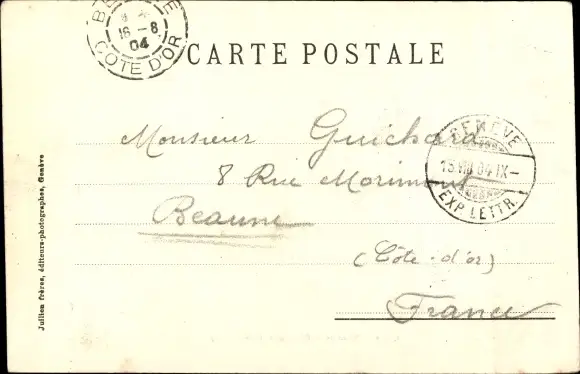 BEAUNE
16 -8
04
COTE D'OR
CARTE POSTALE
Monsieur Guichard
8 Rue Morimont
Beaune
(Côte-d'or)
France
GENÈVE
15 VIII 04 IX-
EXP. LETTR.
Jullien frères, éditeurs-photographes, Genève